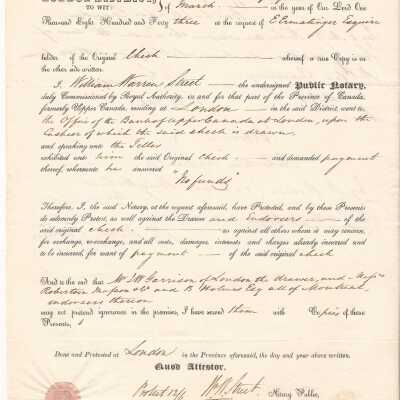 TO WIT:
of March in the year of Our Lord One
Thousand Eight Hundred and Forty three at the request of E Ermatinger Esquire
holder of the Original Check whereof a true Copy is on
the other side written.
I, William Warren Street the undersigned Public Notary,
duly Commissioned by Royal Authority, in and for that part of the Province of Canada,
formerly Upper Canada, residing at London in the said District, went to
the Office of the Bank of Upper Canada at London, upon the
Cashier of which the said check is drawn.
and speaking unto the Teller
exhibited unto him the said Original Check and demanded payment
thereof, whereunto he answered
"No funds"
Therefore, I, the said Notary, at the request aforesaid, have Protested, and by these Presents
do solemnly Protest, as well against the Drawer and Endorsers
of the
said original check as against all others whom it may concern,
for exchange, re-exchange, and all costs, damages, interests and charges already incurred and
to be incurred, for want of payment of the said original check
And to the end that Mr. Garrison of London the drawer, and Messrs
Robertson Masson &Co and B Holmes Esq all of Montreal
endorsers thereon
may not pretend ignorance in the premises, I have served them with Copies of these
Presents,
Done and Protested at London in the Province aforesaid, the day and year above written.
Quod Attestor.
Protest 12/6 W W Street, Notary Public,